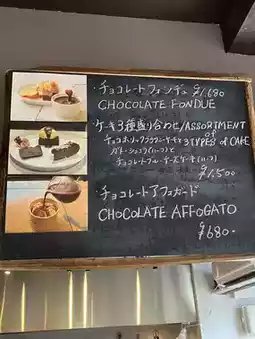 ・チョコレートフォンデュ ¥1,680
CHOCOLATE FONDUE
・ケーキ3種盛り合わせ/ASSORTMENT
of
3 TYPES of CAKE
ガトーショコラ(ハーフ)と
チョコレートブルーチーズケーキ(ハーフ)
¥1,500
・チョコレートアフォガード
CHOCOLATE AFFOGATO
¥680-